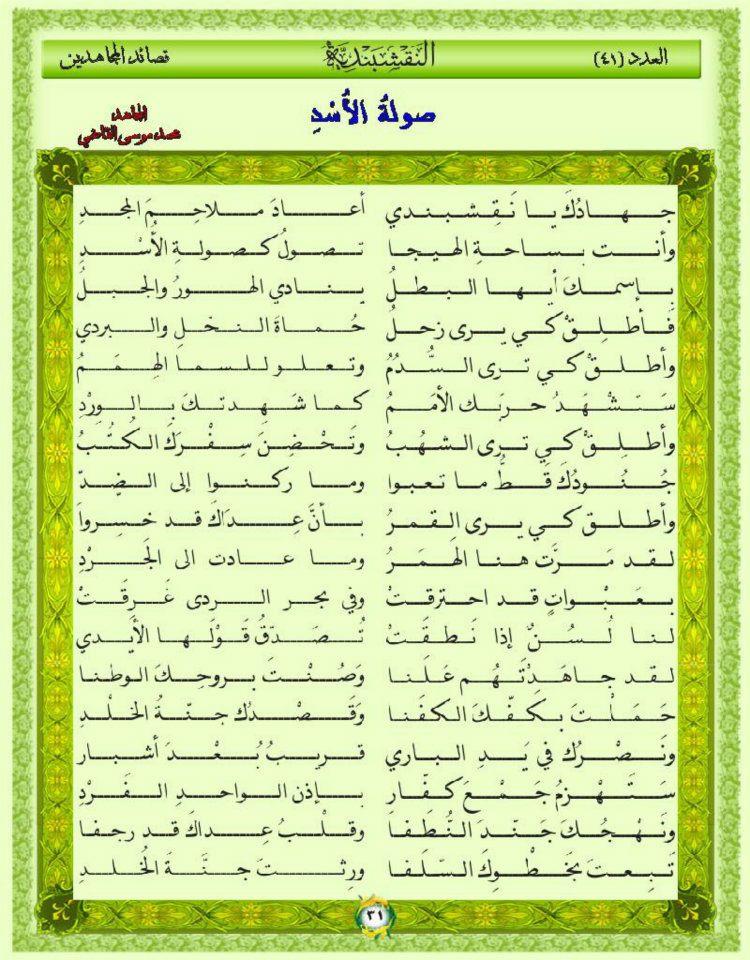 العدد (٤١) النقشبندية قصائد المجاهدين
صولةُ الأُسْدِ
المجاهد
محمد موسى القاضي
جهادُكَ يا نَقِشبندي أعادَ ملاحِمَ المجدِ
وأنت بساحةِ الهيجا تصولُ كصولةِ الأُسْدِ
بإسمكَ أيها البطلُ ينادي الهورُ والجبلُ
فَأطلِقْ كي يرى زحلُ حُماةَ النخلِ والبردي
وأطلقْ كي ترى السُّدُمُ وتعلو للسما الهِمَمُ
سَتَشْهَدُ حربَك الأمَمُ كما شَهِدتك بالوِرْدِ
وأطلِقْ كي ترى الشهُبُ وتَحْضِنَ سِفْرَكَ الكُتُبُ
جُنُودُكَ قَطُّ ما تعبوا وما ركنوا إلى الضِدّ
وأطلق كي يرى القمرُ بأنَّ عِداكَ قد خسِرواَ
لقد مَرَّت هنا الهَمَرُ وما عادت الى الجَرْدِ
بعَبْواتٍ قد احترقتْ وفي بحر الردى غَرِقَتْ
لنا لُسُنٌ إذا نَطقَتْ تُصَدّقُ قَوْلَها الأيدي
لقد جاهَدْتَهُم عَلَنا وَصُنْتَ بروحِكَ الوطنا
حَمَلْتَ بكفّكَ الكفَنا وَقَصْدُك جنّةُ الخلْدِ
ونَصْرُك في يَدِ الباري قريبٌ بُعْدَ أشبار
سَتَهْزِمُ جَمْعَ كفّار بإذن الواحدِ الفَرْدِ
ونَهْجُكَ جَنّدَ النُّطَفا وقلْبُ عِداكَ قد رجفا
تبعتَ بخَطْوِكَ السّلَفا ورِثتَ جنَّةَ الخُلدِ
٣١